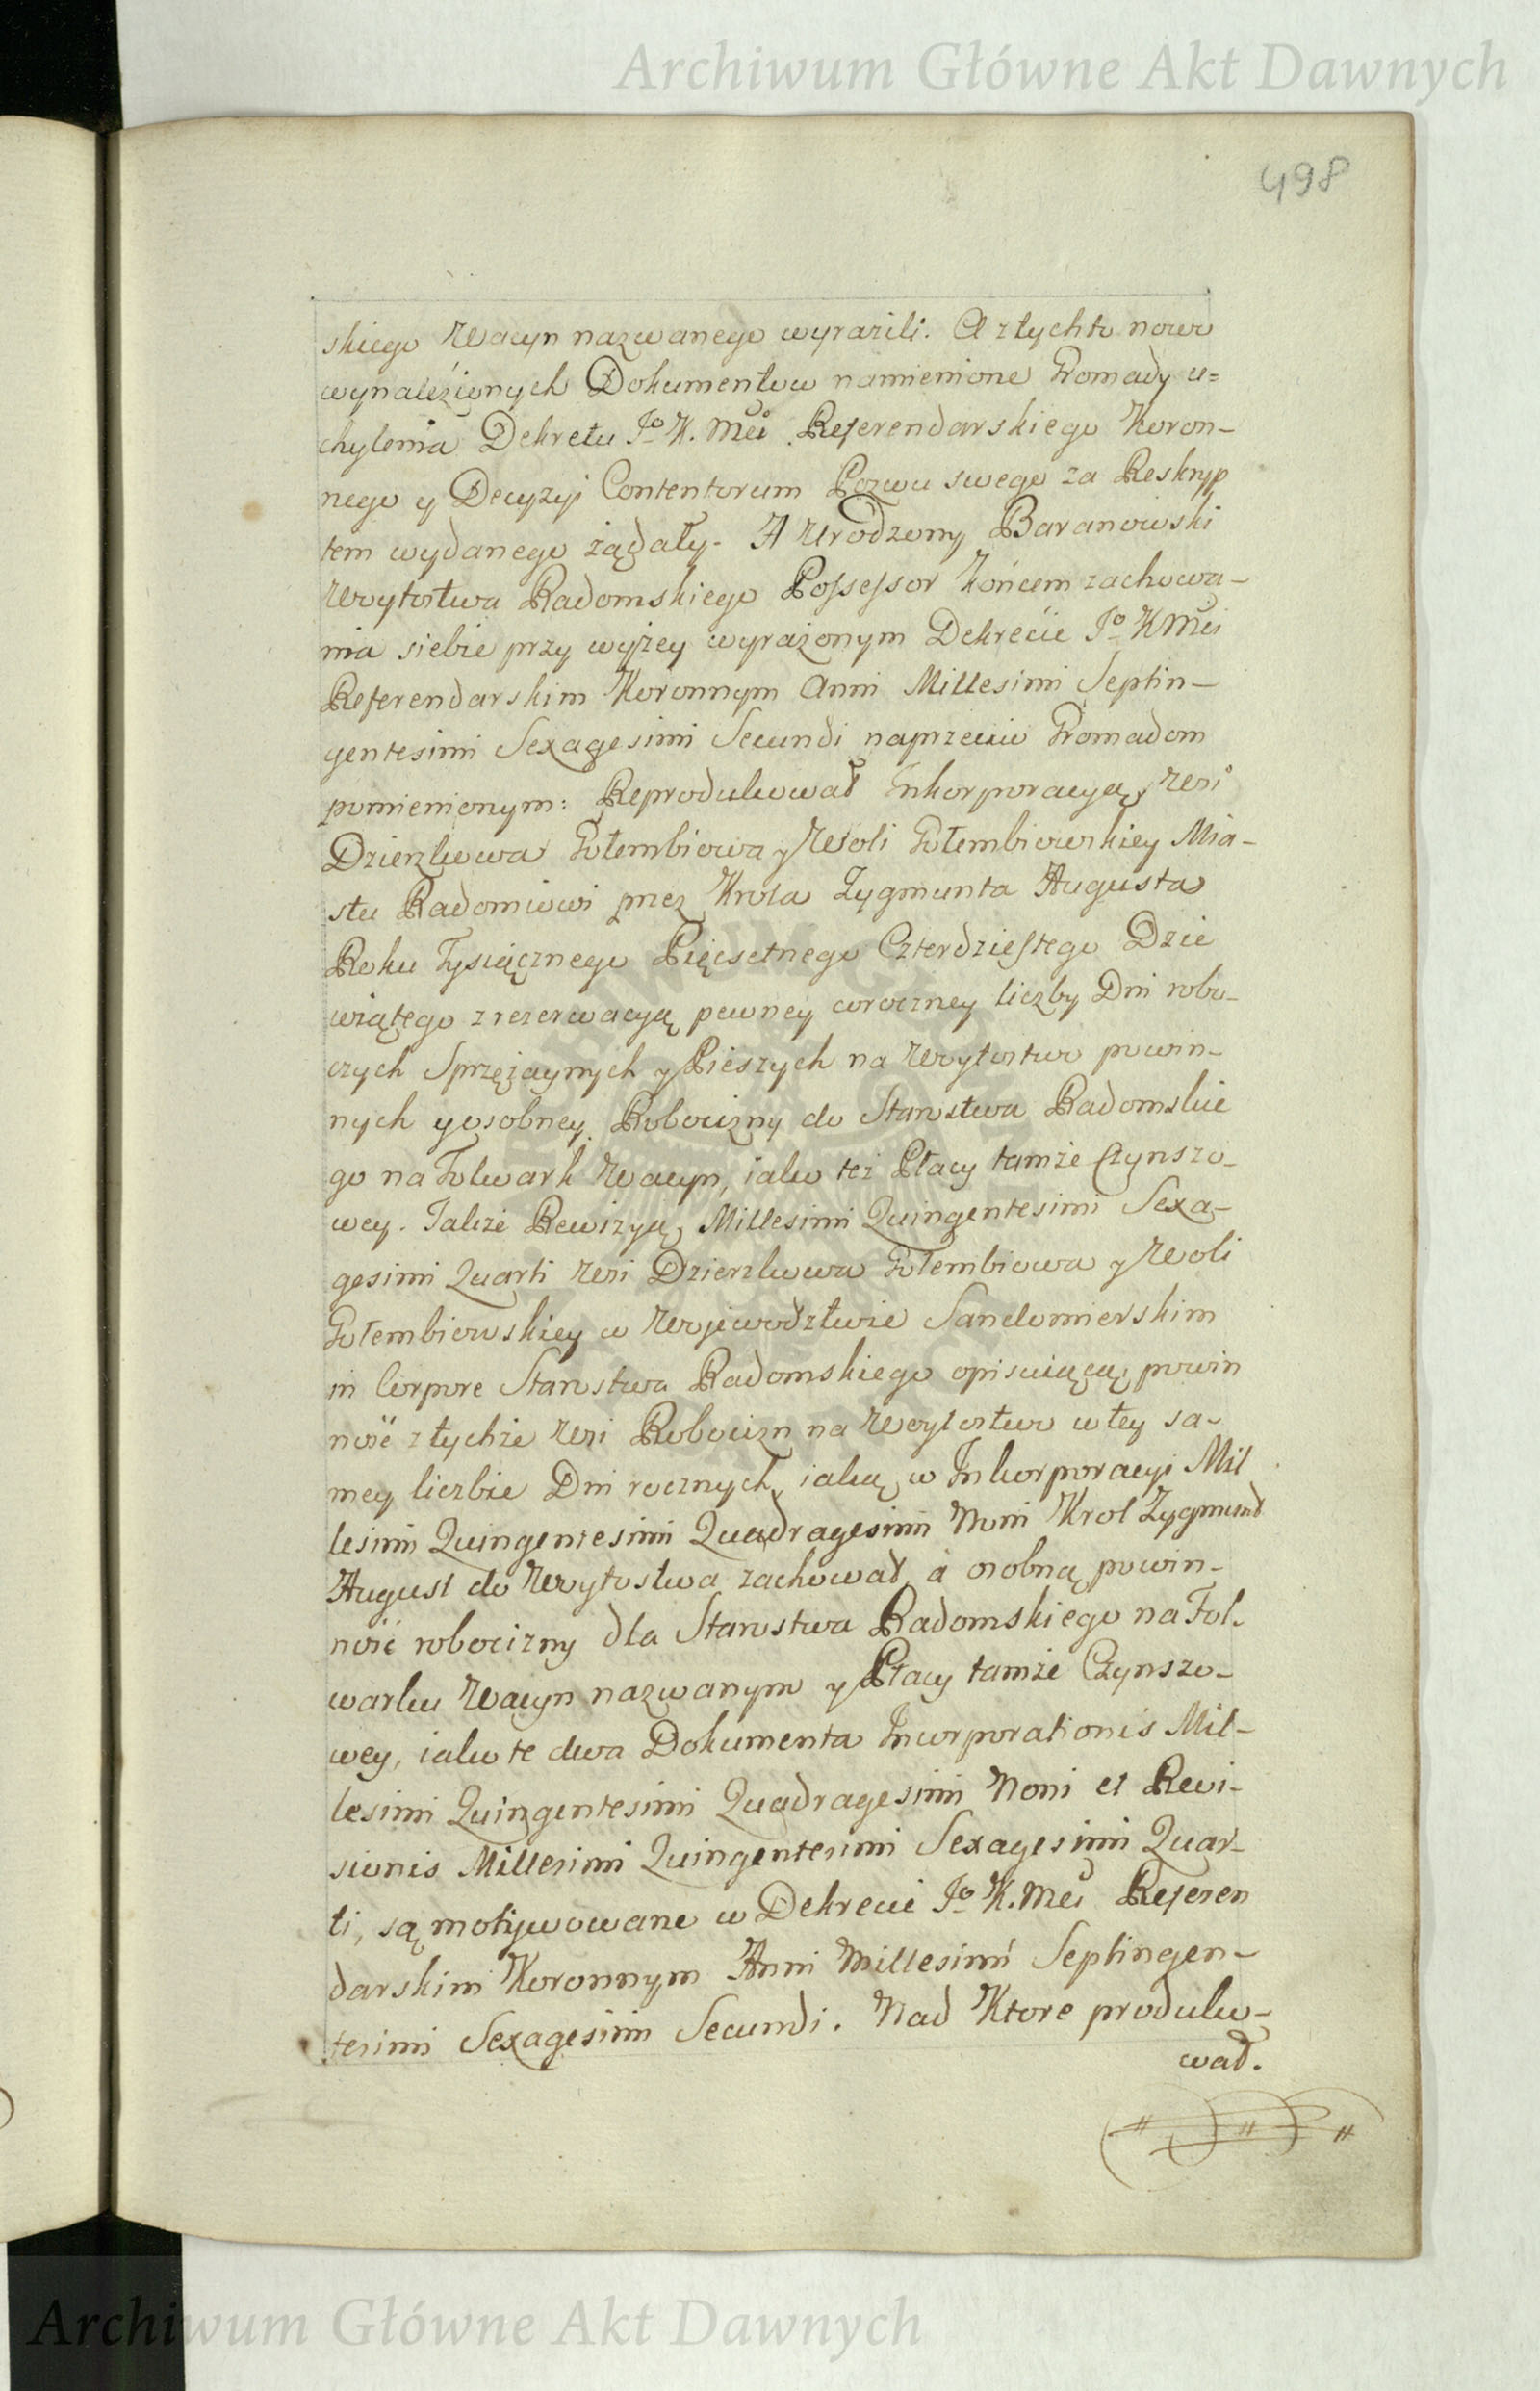 Archiwum Główne Akt Dawnych
498
skiego Wacyn nazwanego wyrazili. A z tychto nowo
wynaleźionych Dokumentow namienione Gromady u=
chylenia Dekretu Jo K. Mći Referendarskiego Koron-
nego y Decyzyi Contentorum Pozwu swego za Reskryp
tem wydanego żądały. A Urodzony Baranowski
Woytostwa Radomskiego Possessor Końcem zachowa-
nia siebie przy wyżey wyrażonym Dekrećie Jo K Mći
Referendarskim Koronnym Anni Millesimi Septin-
gentesimi Sexagesimi Secundi naprzeciw Gromadom
pomienionym: Reprodukował Inkorporacyą Wsi
Dzierzkowa Gołembiowa y Woli Gołembiowskiey Mia-
stu Radomiowi przez Krola Zygmunta Augusta
Roku Tysiącznego Pięcsetnego Czterdziestego Dzie
wiątego z rezerwacyą pewney coroczney liczby Dni robo-
czych Sprzężaynych y Pieszych na Woytostwo powin-
nych y osobney Robocizny do Starostwa Radomskie
go na Folwark Wacyn, iako też Płacy tamże Czynszo-
wey. Takze Rewizyą Millesimi Quingentesimi Sexa-
gesimi Quarti Wsi Dzierzkowa Gołembiowa y Woli
Gołembiowskiey w Wojewodztwie Sandomierskim
in Corpore Starostwa Radomskiego opisuiącą powin
ność z tychże Wsi Robocizn na Woytostwo w tey sa-
mey liczbie Dni rocznych, iaką w Inkorporacyi Mil
lesimi Quingentesimi Quadragesimi Noni Krol Zygmunt
August do Woytostwa zachował, á osobną powin-
ność robocizny dla Starostwa Radomskiego na Fol-
warku Wacyn nazwanym y Płacy tamże Czynszo-
wey, iako te dwa Dokumenta Incorporationis Mil-
lesimi Quingentesimi Quadragesimi Noni et Revi-
sionis Millesimi Quingentesimi Sexagesimi Quar-
ti, są motywowane w Dekrecie Jo K. Mći Referen
darskim Koronnym Anni Millesimi Septingen-
tesimi Sexagesimi Secundi. Nad Ktore produko-
wał.
Archiwum Główne Akt Dawnych